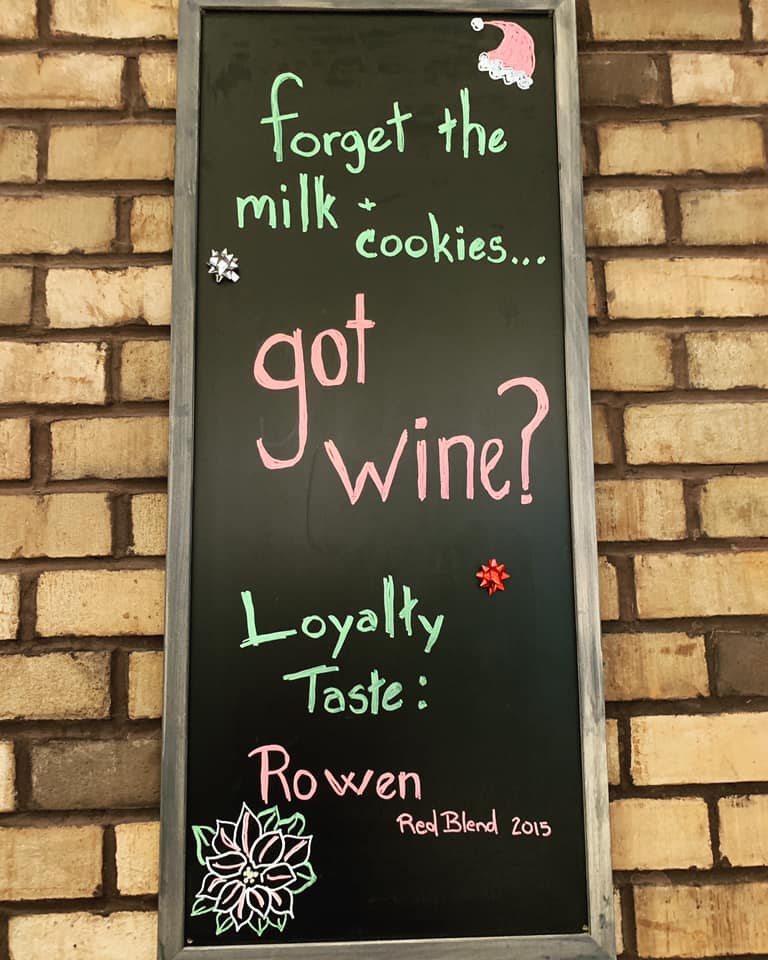 forget the
milk +
cookies...
got
wine?
Loyalty
Taste:
Rowen
Red Blend 2015